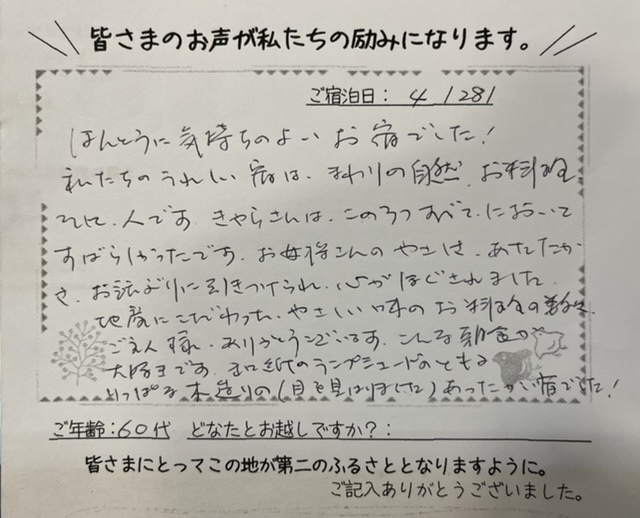 皆さまのお声が私たちの励みになります。
ご宿泊日: 4/28
ほんとうに気持ちのよいお宿でした!
私たちのうれしい宿は、まわりの自然、お料理
人です。きゃらさんは、この3つすべてにおいて
すばらしかったです。お女将さんのやさしさ、あたたか
さ、お話ぶりに引きつけられ、心がほぐされました。
地産にこだわった、やさしい味のお料理の数々
ご主人様、ありがとうございます。こんな朝食が
大好きです。和紙のランプシェードのともる
りっぱな木造りの(目を見はりました)あったかい宿でした!
ご年齢:60代 どなたとお越しですか?:
皆さまにとってこの地が第二のふるさととなりますように。
ご記入ありがとうございました。